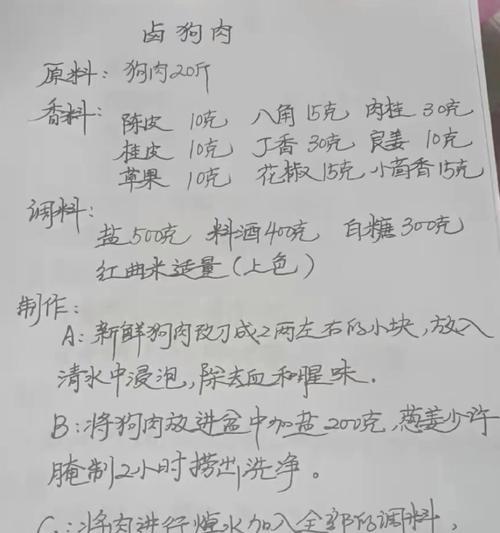 卤狗肉
原料：狗肉20斤
香料：陈皮 10克 八角 15克 肉桂 30克
桂皮 10克 丁香 30克 良姜 10克
草果 10克 花椒 15克 小茴香 15克
调料：
盐500克 料酒400克 白糖300克
红曲米适量（上色）
制作：
A：新鲜狗肉改刀成2两左右的小块，放入
清水中浸泡，除去血和腥味．
B：将狗肉放进盆中加盐200克，葱姜少许
腌制2小时捞出洗净。
C：将肉进行焯水加入全部的调料，